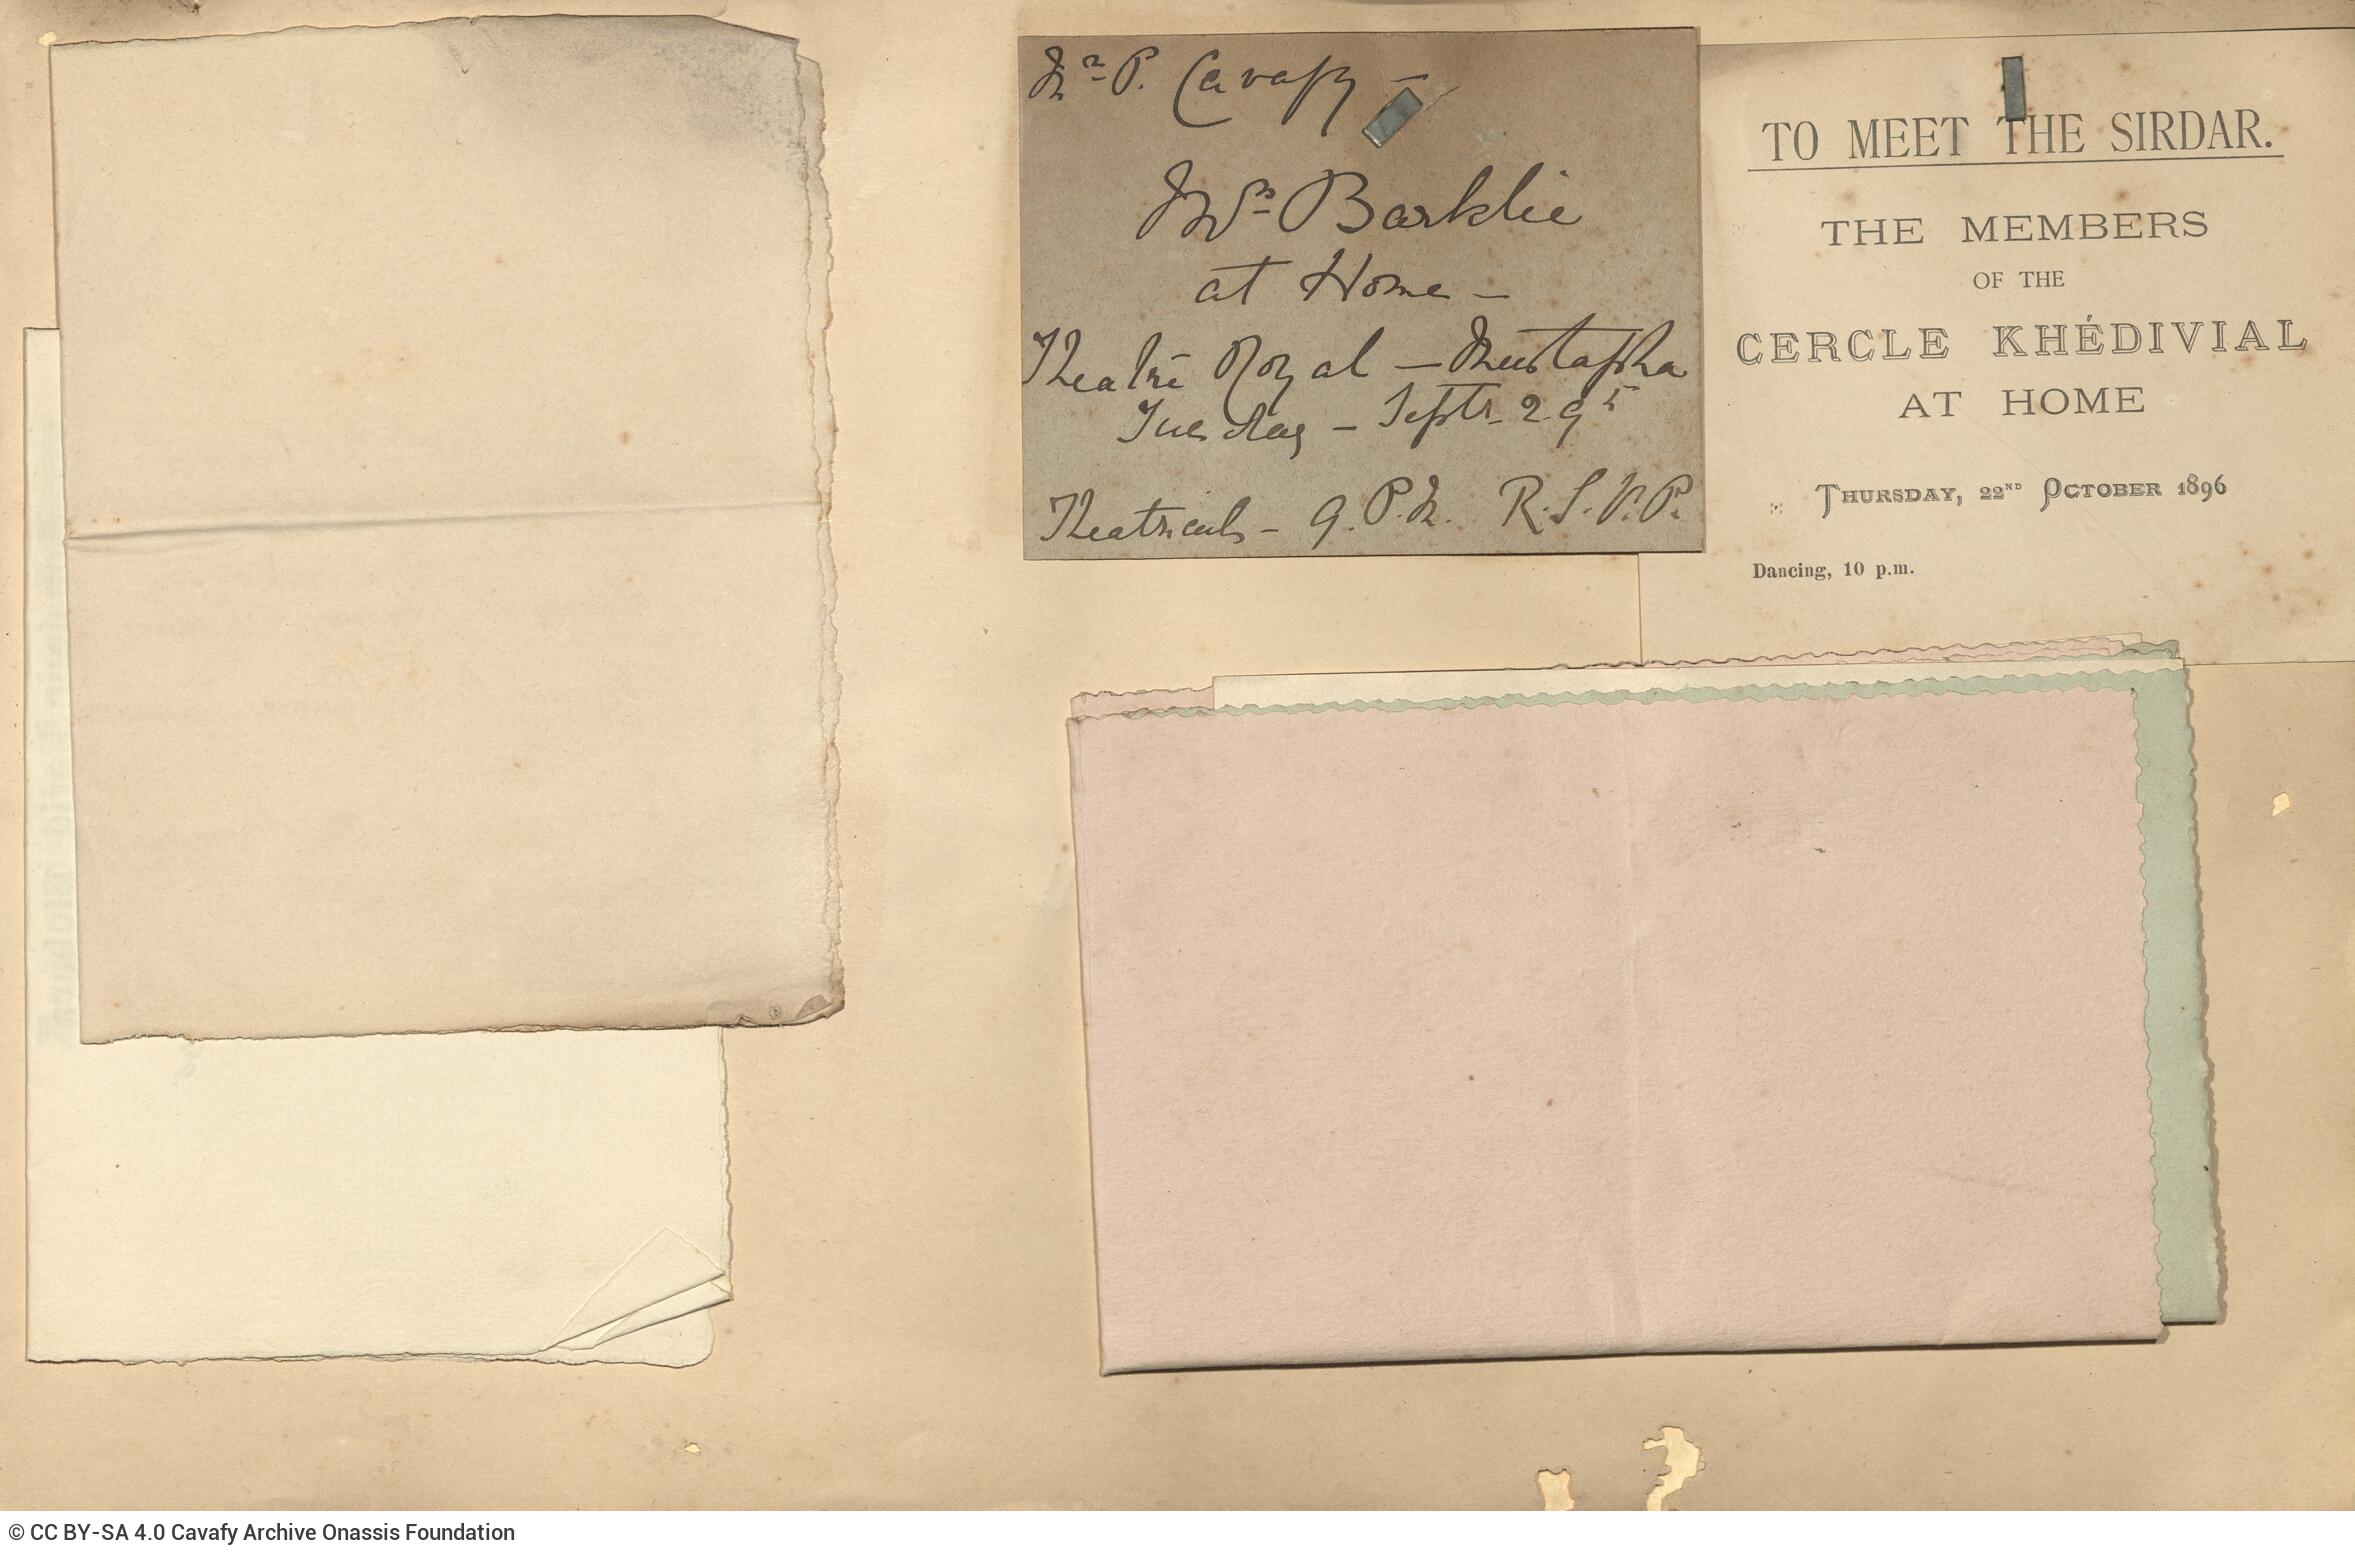 Mr P. Cavafy –
Mrs Barklie
at Home –
Theatre Royal – Mustapha
Tuesday – Septr. 29th
Theatricals – 9. P.M. R.S.V.P.
TO MEET THE SIRDAR.
THE MEMBERS
OF THE
CERCLE KHÉDIVIAL
AT HOME
THURSDAY, 22ND OCTOBER 1896
Dancing, 10 p.m.
© CC BY-SA 4.0 Cavafy Archive Onassis Foundation